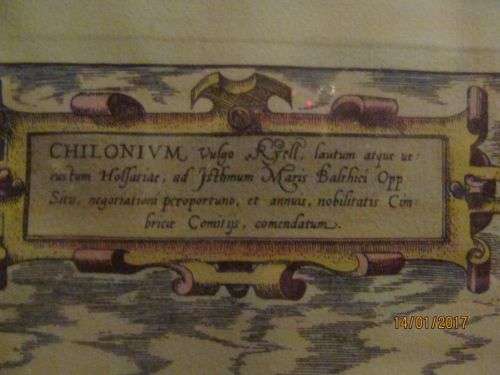 CHILONIVM Vulgo Kyell, lautum atque ue:
tustum Holsatiae, ad Isthmum Maris Balthici Opp
Situ, negotiationi peroportuno, et annuis, nobilitatis Cim
bricæ Comitijs, comendatum.
14/01/2017